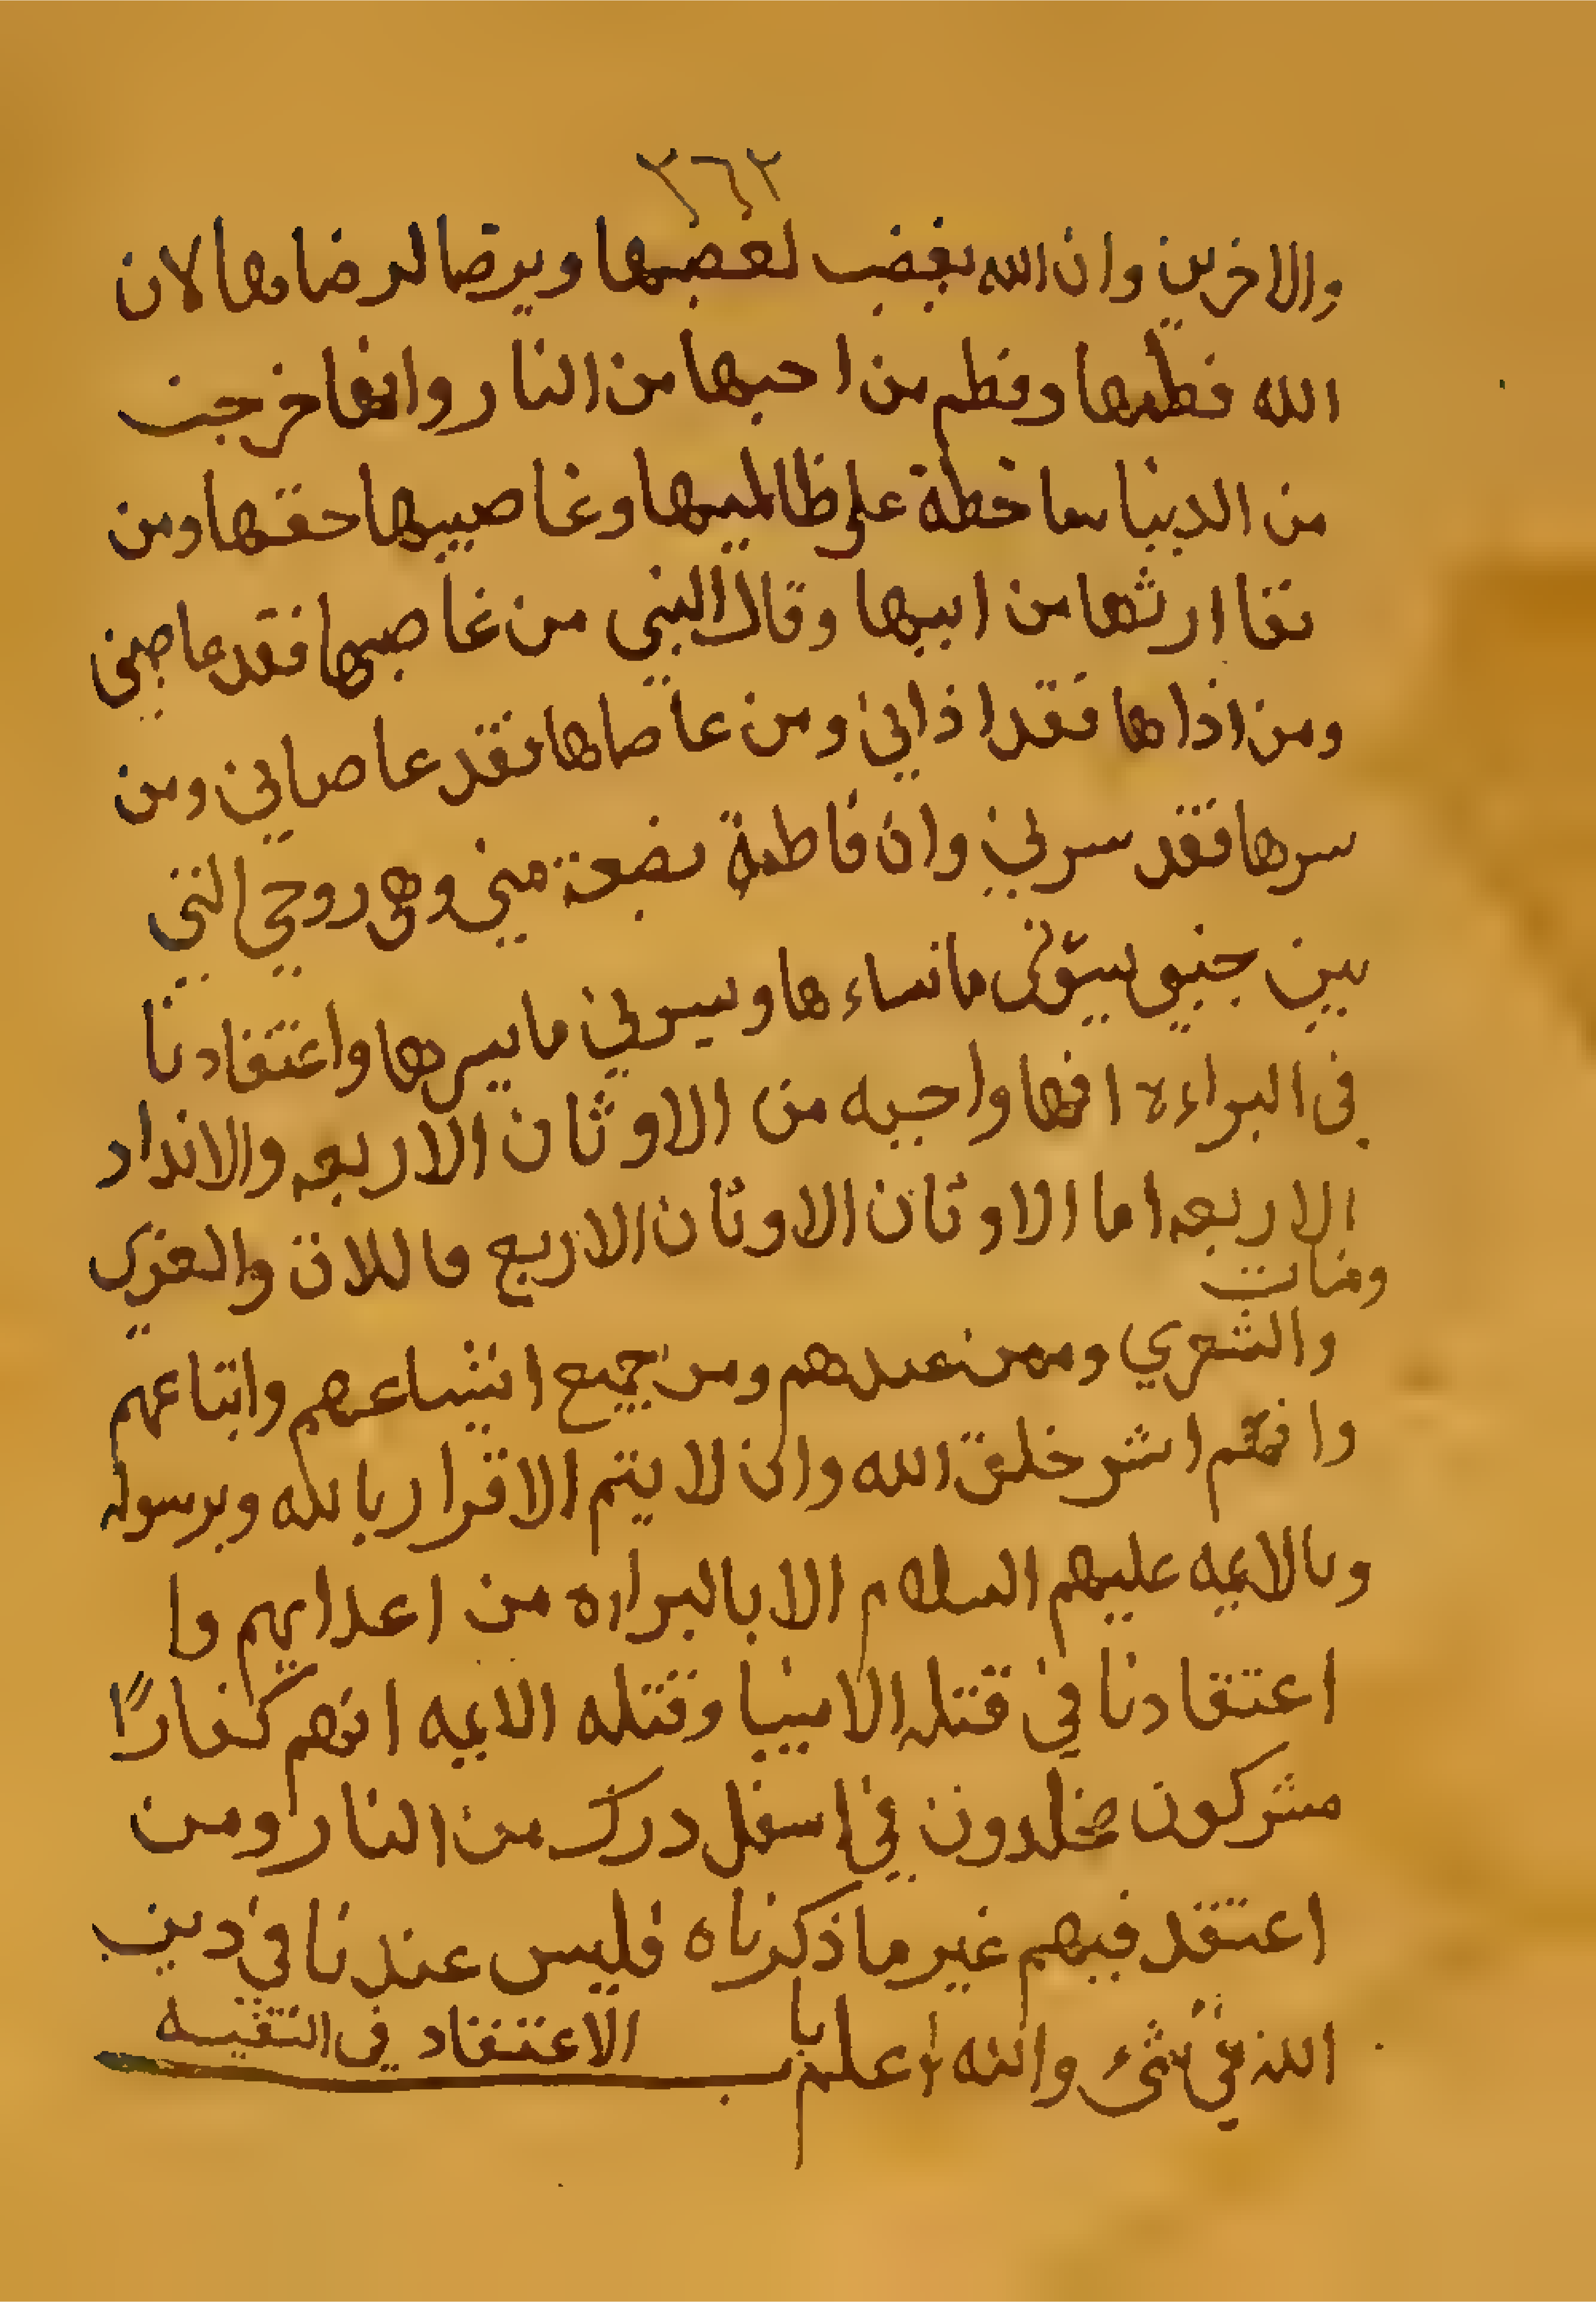 ٣٦٢
والاخرين وان الله يغضب لغضبها ويرضا لرضاها لان
الله فطمها وفطم من احبها من النار وانها خرجت
من الدينا ساخطة على ظالميها وغاصبيها حقها ومن
نفا ارثها من ابيها وقال النبي من غاصبها فقد غاصبني
ومن اذاها فقد اذاني ومن عاصاها فقد عاصاني ومن
سرها فقد سرني وان فاطمة بضعة مني وهي روحي التي
بين جنبي يسؤني ماساءها ويسرني مايسرها واعتقادنا
في البراءة انها واجبه من الاوثان الاربعه والانداد
الاربعه اما الاوثان الاوثان الاربع فاللات والعزى
ومنات
والشعري وممن عندهم ومن جميع اشياعهم واتباعهم
وانهم اشر خلق الله وان لا يتم الاقرار بالله وبرسوله
وبالايمه عليهم السلام الا بالبراه من اعدايهم وا
اعتقادنا في قتله الانبيا وقتله الايمه انهم كفارًا
مشركون مخلدون في اسفل درك من النار ومن
اعتقد فيهم غير ماذكرناه فليس عندنا في دين
الله في شئ والله اعلم باب الاعتقاد في التقيه